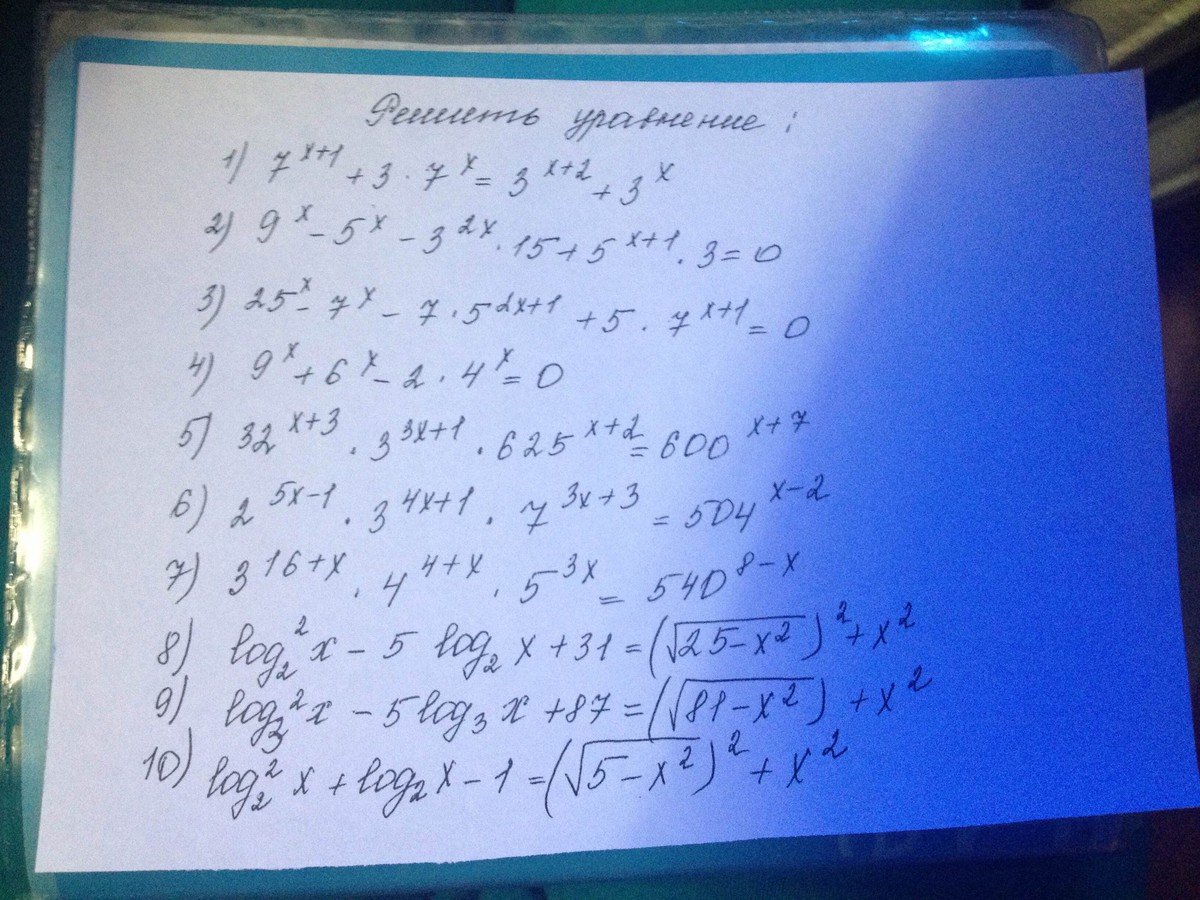 Решить уравнение:
1) 7^{x+1} + 3 · 7^x = 3^{x+2} + 3^x
2) 9^x - 5^x - 3^{2x} · 15 + 5^{x+1} · 3 = 0
3) 25^x - 7^x - 7 · 5^{2x+1} + 5 · 7^{x+1} = 0
4) 9^x + 6^x - 2 · 4^x = 0
5) 32^{x+3} · 3^{3x+1} · 625^{x+2} = 600^{x+7}
6) 2^{5x-1} · 3^{4x+1} · 7^{3x+3} = 504^{x-2}
7) 3^{16+x} · 4^{4+x} · 5^{3x} = 540^{8-x}
8) log_2^2 x - 5 log_2 x + 31 = (√(25-x^2))^2 + x^2
9) log_3^2 x - 5 log_3 x + 87 = (√(81-x^2)) + x^2
10) log_2^2 x + log_2 x - 1 = (√(5-x^2))^2 + x^2